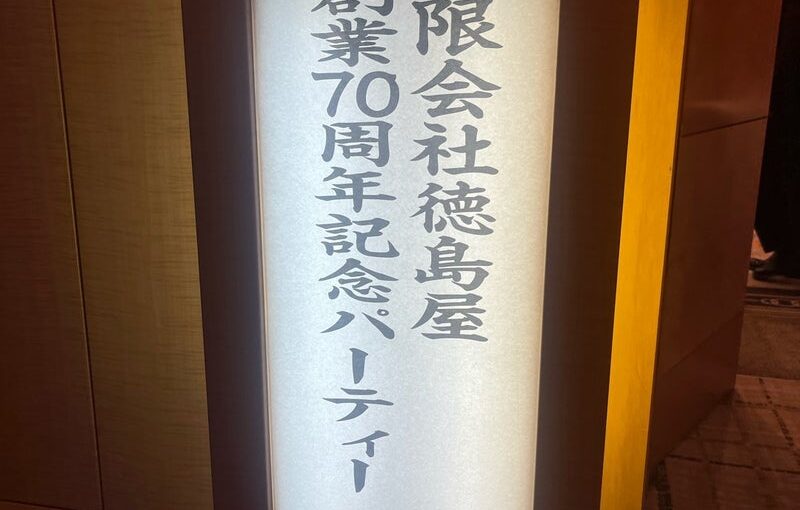 限会社徳島屋
創業70周年記念パーティー